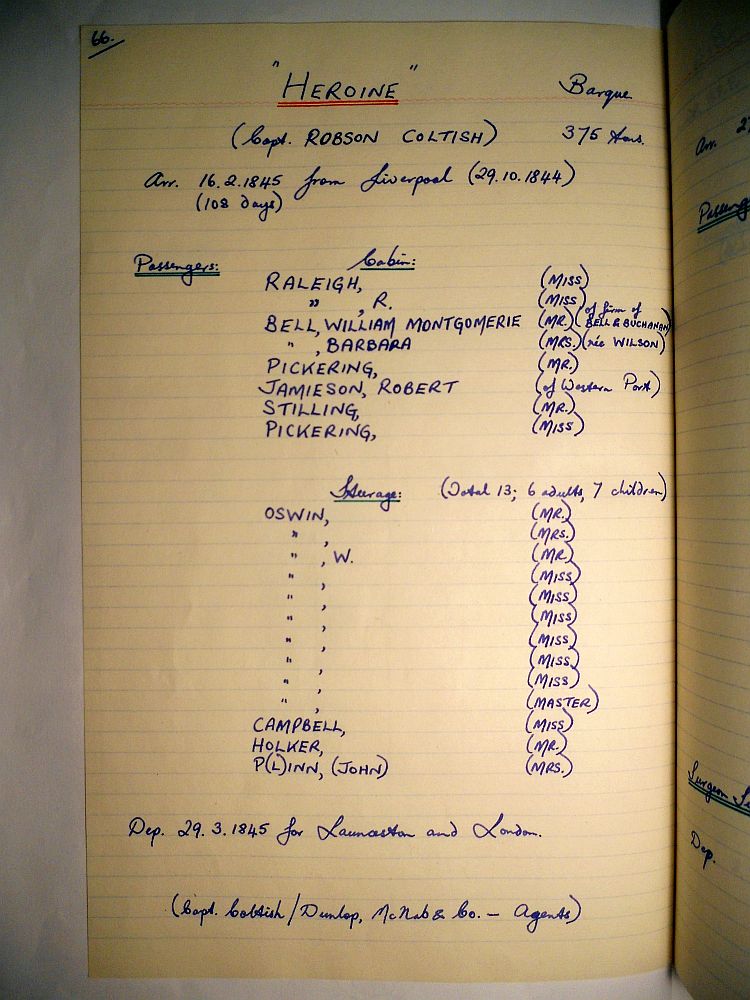 66.
"HEROINE" Barque
(Capt. ROBSON COLTISH) 375 tons.
Arr. 16.2.1845 from Liverpool (29.10.1844)
(108 days)
Passengers: Cabin:
RALEIGH, (MISS)
" , R. (MISS)
BELL, WILLIAM MONTGOMERIE (MR.) (of firm of BELL & BUCHANAN)
" , BARBARA (MRS.) (née WILSON)
PICKERING, (MR.)
JAMIESON, ROBERT (of Western Port)
STILLING, (MR.)
PICKERING, (MISS)
Steerage: (Total 13; 6 adults, 7 children)
OSWIN, (MR.)
" , (MRS.)
" , W. (MR.)
" , (MISS)
" , (MISS)
" , (MISS)
" , (MISS)
" , (MISS)
" , (MISS)
" , (MASTER)
CAMPBELL, (MISS)
HOLKER, (MR.)
P(L)INN, (JOHN) (MRS.)
Dep. 29.3.1845 for Launceston and London.
(Capt. Coltish/Dunlop, McNab & Co. — Agents)
Arr. 2
Passeng
Surgeon
Dep.